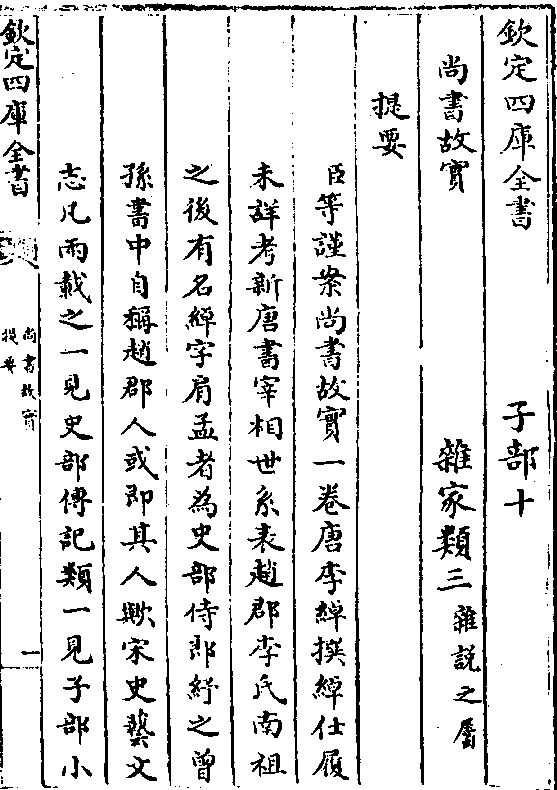 欽定四庫全書　子部十
尚書故實　雜家類三雜説之屬
提要
臣等謹案尚書故實一卷唐李綽撰綽仕履
未詳考新唐書宰相世系表趙郡李氏南祖
之後有名綽字肩孟者為吏部侍郎紓之曾
孫書中自稱趙郡人或即其人歟宋史藝文
志凡兩載之一見史部傳記類一見子部小
欽定四庫全書
尚書故實
提要
一